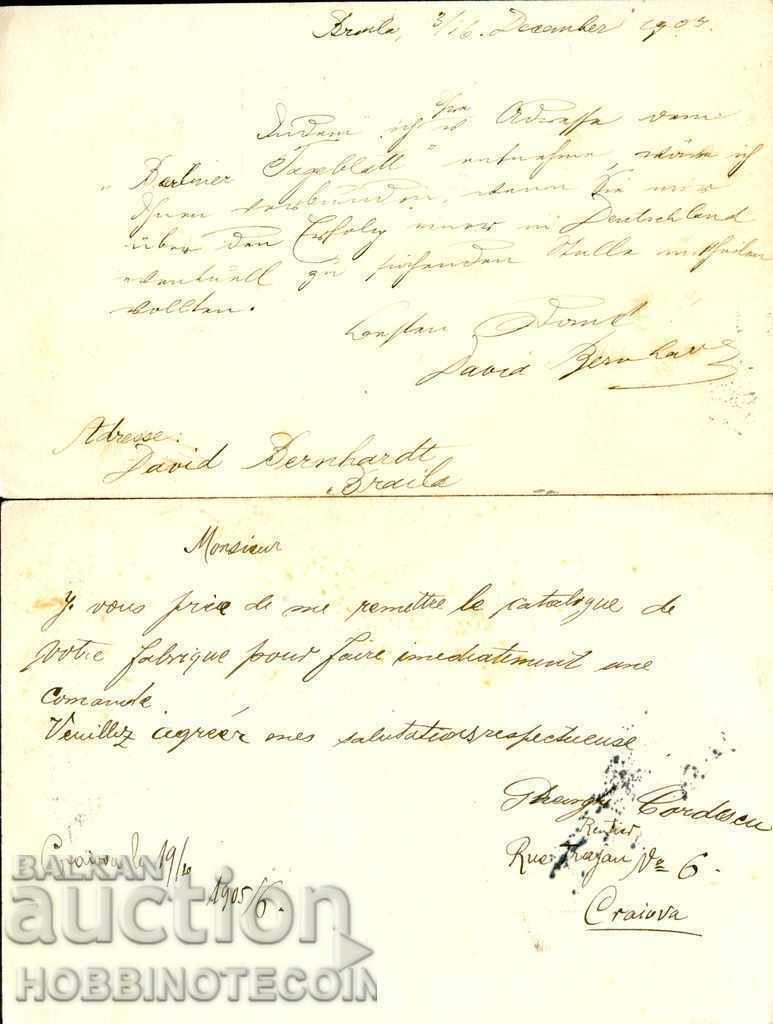 Braila, 3/16. December 1903.
Indem ich Ihre Adresse vom
"Berliner Tageblatt" entnehme, wäre ich
Ihnen verbunden, wenn Sie mir
über den Erfolg einer in Deutschland
eventuell zu suchenden Stelle mittheilen
wollten.
besten Dank
David Bernhardt
Adresse:
David Bernhardt
Braila
Monsieur
J. vous prie de me remettre le catalogue de
votre fabrique pour faire imediatement une
comande
Veuillez agréér mes salutations respectueuse
Cordescu
Rentier
Rue Trajan No 6.
Craiova
Craiova le 19/
1905/6.
BALKAN
auction
HOBBINOTECOIN